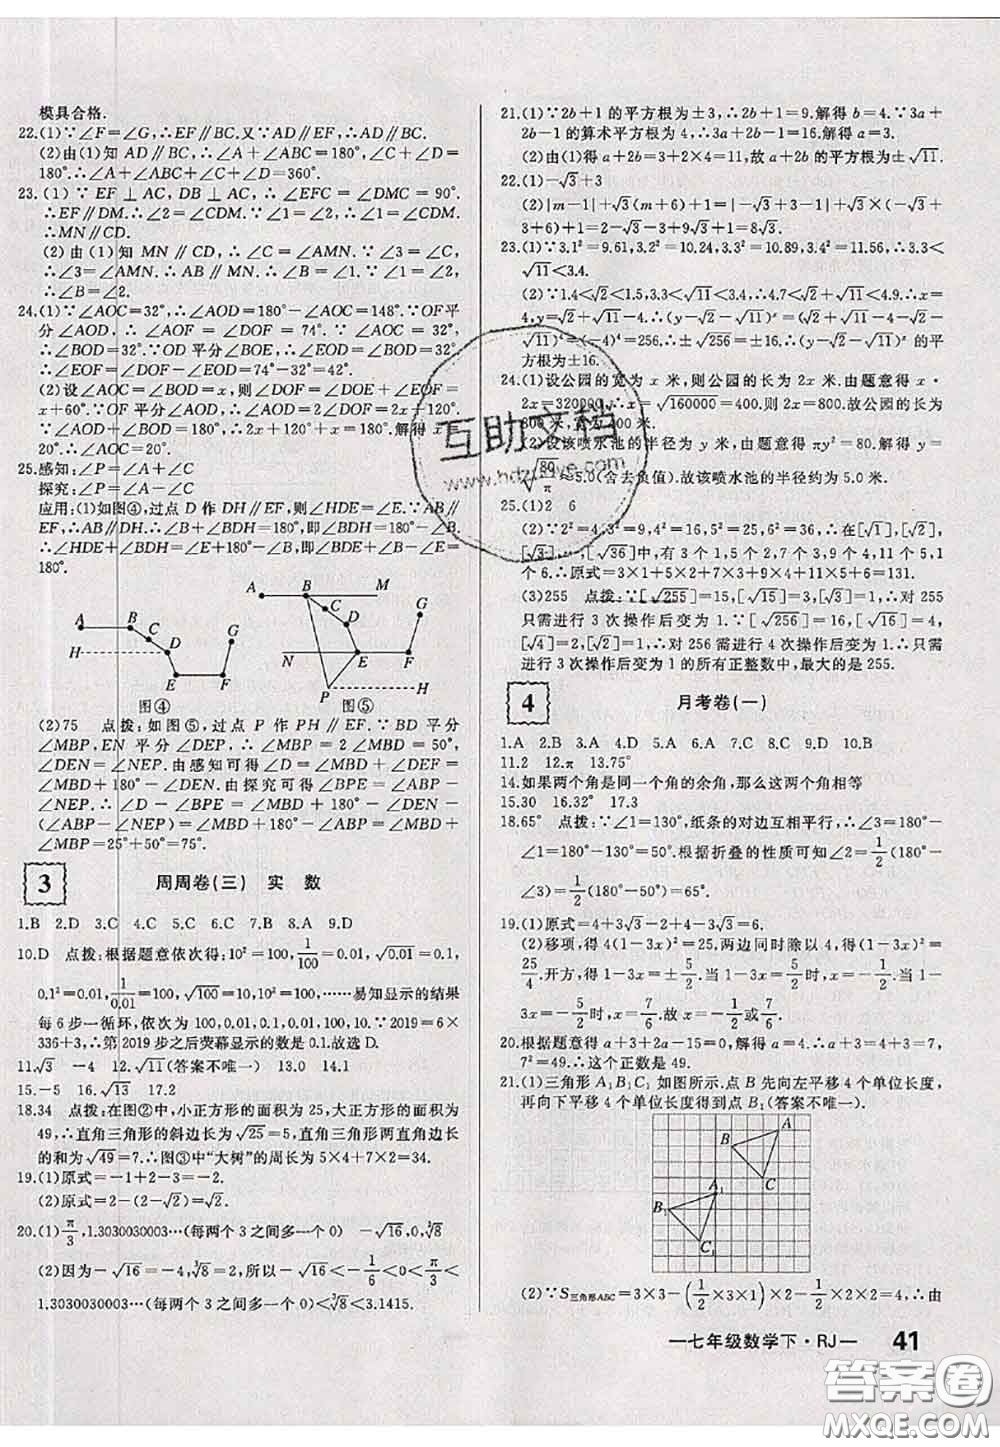 模具合格.
22.(1)∵∠F=∠G,∴EF∥BC.又∵AD∥EF,∴AD∥BC.
(2)由(1)知 AD∥BC,∴∠A+∠ABC=180°,∠C+∠D=180°,∴∠A+∠ABC+∠C+∠D=360°.
23.(1)∵ EF⊥AC, DB⊥AC,∴∠EFC=∠DMC=90°.
∴EF∥DM.∴∠2=∠CDM.∵∠1=∠2,∴∠1=∠CDM.
∴MN∥CD.
(2)由(1)知 MN∥CD,∴∠C=∠AMN.∵∠3=∠C,
∴∠3=∠AMN.∴AB∥MN.∴∠B=∠1.∵∠1=∠2,
∴∠B=∠2.
24.(1)∵∠AOC=32°,∴∠AOD=180°-∠AOC=148°.∵OF平
分∠AOD,∴∠AOF=∠DOF=74°.∵∠AOC=32°,
∴∠BOD=32°.∵OD平分∠BOE,∴∠EOD=∠BOD=32°.
∴∠EOF=∠DOF-∠EOD=74°-32°=42°.
(2)设∠AOC=∠BOD=x,则∠DOF=∠DOE+∠EOF=
x+60°.∵OF平分∠AOD,∴∠AOD=2∠DOF=2x+120°.
∵∠AOD+∠BOD=180°,∴2x+120°+x=180°.解得 x=
20°.∴∠AOC=20°.
25.感知:∠P=∠A+∠C
探究:∠P=∠A-∠C
应用:(1)如图④,过点 D 作 DH∥EF,则∠HDE=∠E.∵AB∥
EF,∴AB∥DH.∴∠B+∠BDH=180°,即∠B+∠BDE-
∠HDE+∠BDH=∠E+180°-∠E=180°,即∠B+∠BDE-∠E=
180°.
A B C D G H E F
图④
A B M C D N E F G P H
图⑤
(2)75 点拨:如图⑤,过点 P 作 PH∥EF.∵ BD 平分
∠MBP,EN 平分∠DEP,∴∠MBP=2∠MBD=50°,
∠DEN=∠NEP.由感知可得∠D=∠MBD+∠DEF=
∠MBD+180°-∠DEN.由探究可得∠BPE=∠ABP-
∠NEP.∴∠D-∠BPE=∠MBD+180°-∠DEN-
(∠ABP-∠NEP)=∠MBD+180°-∠ABP=∠MBD+
∠MBP=25°+50°=75°.
3 周周卷(三) 实 数
1.B 2.D 3.C 4.C 5.D 6.B 7.B 8.A 9.D
10.D 点拨:根据题意依次得:10²=100,1/100=0.01,√0.01=0.1,
0.1²=0.01,1/0.01=100,√100=10,10²=100,……易知显示的结果
每 6 步一循环,依次为 100,0.01,0.1,0.01,100,10.∵2019=6×
336+3,∴第 2019 步之后荧幕显示的数是 0.1.故选 D.
11.√3 -4 12.√11(答案不唯一) 13.0 14.1
15.-5 16.√13 17.2
18.34 点拨:在图②中,小正方形的面积为 25,大正方形的面积为
49,∴直角三角形的斜边长为√25=5,直角三角形两直角边长
的和为√49=7.∴图③中“大树”的周长为 5×4+7×2=34.
19.(1)原式=-1+2-3=-2.
(2)原式=2-(2-√2)=√2.
20.(1)π/3,1.3030030003…(每两个 3 之间多一个 0) -√16,∛8
(2)因为-√16=-4,∛8=2,所以-√16<-1/6<0<π/3<
1.3030030003…(每两个 3 之间多一个 0)<∛8<3.1415.
21.(1)∵2b+1 的平方根为±3,∴2b+1=9.解得 b=4.∵3a+
2b-1 的算术平方根为 4,∴3a+2b-1=16.解得 a=3.
(2)由(1)得 a+2b=3+2×4=11,故 a+2b 的平方根为±√11.
22.(1)-√3+3
(2)|m-1|+√3(m+6)+1=|-√3+3-1|+√3×(-√3+
3+6)+1=2-√3-3+9√3+1=8√3.
23.(1)∵3.1²=9.61,3.2²=10.24,3.3²=10.89,3.4²=11.56,∴3.3<
√11<3.4.
(2)∵1.4<√2<1.5,3.3<√11<3.4,∴4.7<√2+√11<4.9.∴x=
4,y=√2+√11-4.∴(y-√2-√11)ˣ=(√2+√11-4-√2-
√11)⁴=(-4)⁴=256.∴±√256=±16.∴(y-√2-√11)ˣ的平
方根为±16.
24.(1)设公园的宽为 x 米,则公园的长为 2x 米.由题意得 x·
2x=320000,∴x=√160000=400.∴2x=800.故公园的长为
800 米,宽为 400 米.
(2)设该喷水池的半径为 y 米,由题意得 πy²=80.解得 y=
√80/π≈5.0(舍去负值).故该喷水池的半径约为 5.0 米.
25.(1)2 6
(2)∵2²=4,3²=9,4²=16,5²=25,6²=36,∴在[√1],[√2],
[√3],…,[√36]中,有 3 个 1,5 个 2,7 个 3,9 个 4,11 个 5,1
个 6.∴原式=3×1+5×2+7×3+9×4+11×5+6=131.
(3)255 点拨:∵[√255]=15,[√15]=3,[√3]=1,∴对 255
只需进行 3 次操作后变为 1.∵[√256]=16,[√16]=4,
[√4]=2,[√2]=1,∴对 256 需进行 4 次操作后变为 1.∴只需
进行 3 次操作后变为 1 的所有正整数中,最大的是 255.
4 月考卷(一)
1.A 2.B 3.A 4.D 5.C 6.A 7.C 8.C 9.D 10.B
11.2 12.π 13.75°
14.如果两个角是同一个角的余角,那么这两个角相等
15.30 16.32° 17.3
18.65° 点拨:∵∠1=130°,纸条的对边互相平行,∴∠3=180°-
∠1=180°-130°=50°.根据折叠的性质可知∠2=1/2(180°-
∠3)=1/2(180°-50°)=65°.
19.(1)原式=4+3√3-2+4-3√3=6.
(2)移项,得 4(1-3x)²=25,两边同时除以 4,得(1-3x)²=
25/4.开方,得 1-3x=±5/2.当 1-3x=5/2时,x=-1/2;当 1-
3x=-5/2时,x=7/6.故 x=-1/2或7/6.
20.根据题意得 a+3+2a-15=0,解得 a=4.∴a+3=4+3=7,
7²=49.∴这个正数是 49.
21.(1)三角形 A₁B₁C₁ 如图所示.点 B 先向左平移 4 个单位长度,
再向下平移 4 个单位长度得到点 B₁(答案不唯一).
A B C A₁ B₁ C₁
(2)∵S三角形ABC=3×3-(1/2×3×1)×2-1/2×2×2=4,由
—七年级数学下·RJ— 41
互助文档
www.hdzuoye.com
答案圈
MXQE.COM